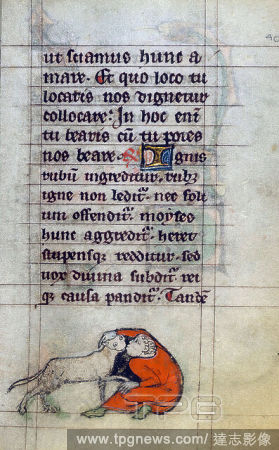 ut sciamus hunc a
mare. Et quo loco tu
locaris nos dignetur
collocare. In hoc eni
tu bearis cū tu poies
nos beare. Ignis
rubū ingreditur. rubȝ
igne non leditr̄. nec foli
um offenditr̄. moyses
hunc aggreditr̄. heret
stupensqȝ redditur. sed
vox divina subditr̄. rei
qȝ causa panditr̄. Tandē
TPG
www.tpgnews.com/達志影像